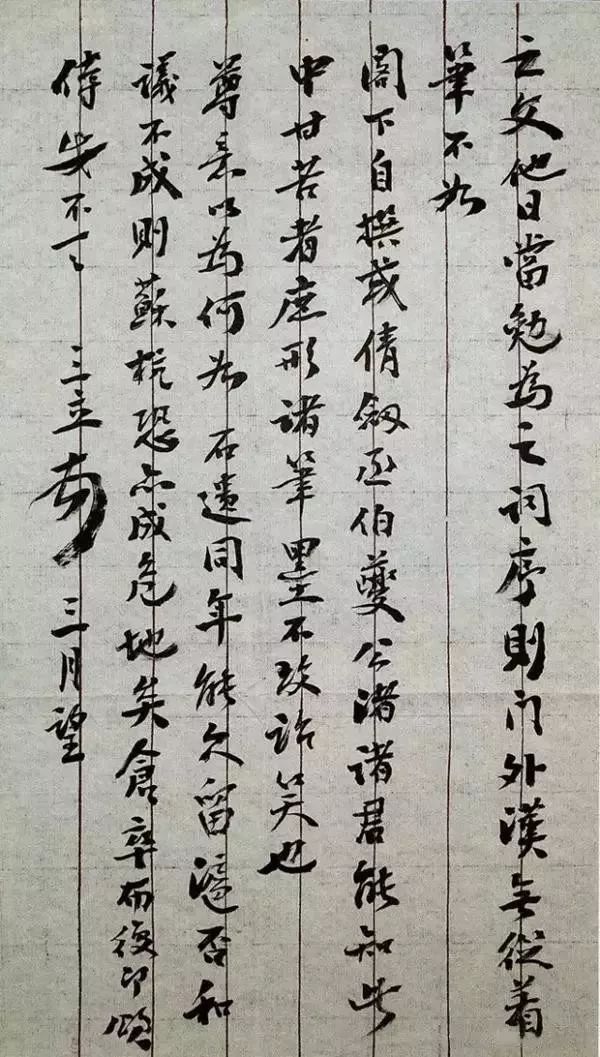 之文他日當勉為之詞序則门外漢無從着
筆不如
阁下自撰或倩劍丞伯夔公渚諸君能知此
中甘苦者庶形諸筆墨不致詒笑也
尊意以為何如 石遗同年能久留滬否和
議不成則蘇杭恐亦成危地矣倉卒布復即頌
侍安不一 三立頓 三月望